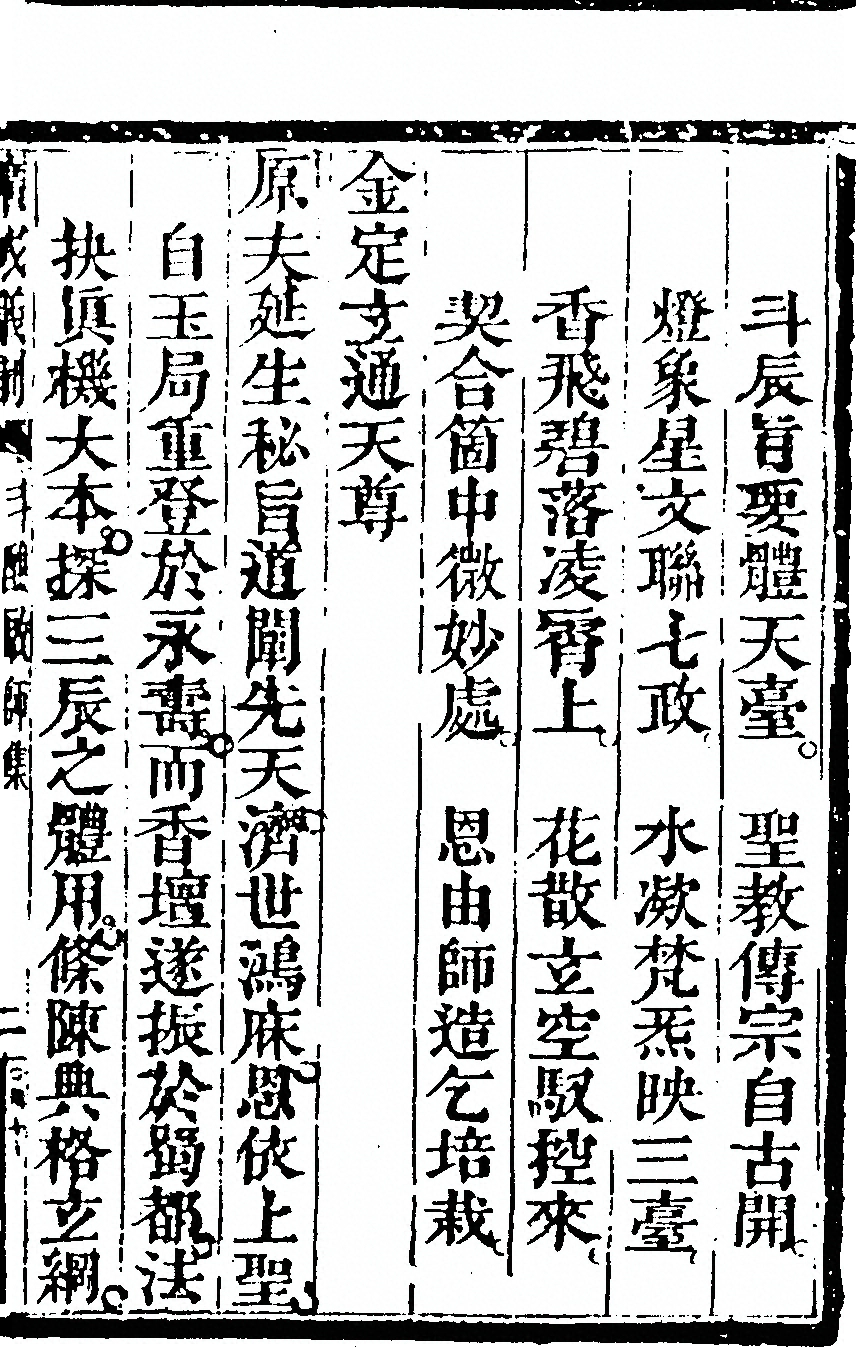 斗辰旨要體天臺。聖教傳宗自古開
燈象星文聯七政　水凝梵炁映三臺
香飛碧落凌霄上　花散玄空馭控來
契合箇中微妙處　恩由師造乞培栽
金定玄通天尊
原夫延生秘旨道闡先天濟世鴻庥恩依上聖
自玉局重登於永壽而香壇遂振於蜀都法
抉眞機大本探三辰之體用條陳典格立綱
斗醮啟師集
二